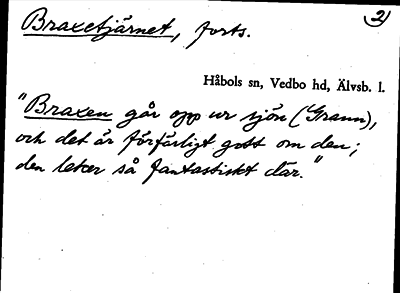 Braxetjärnet, forts.
2)
Håbols sn, Vedbo hd, Älvsb. l.
"Braxen går opp ur sjön (Grann),
och det är förfärligt gott om den;
den leker så fantastiskt där."